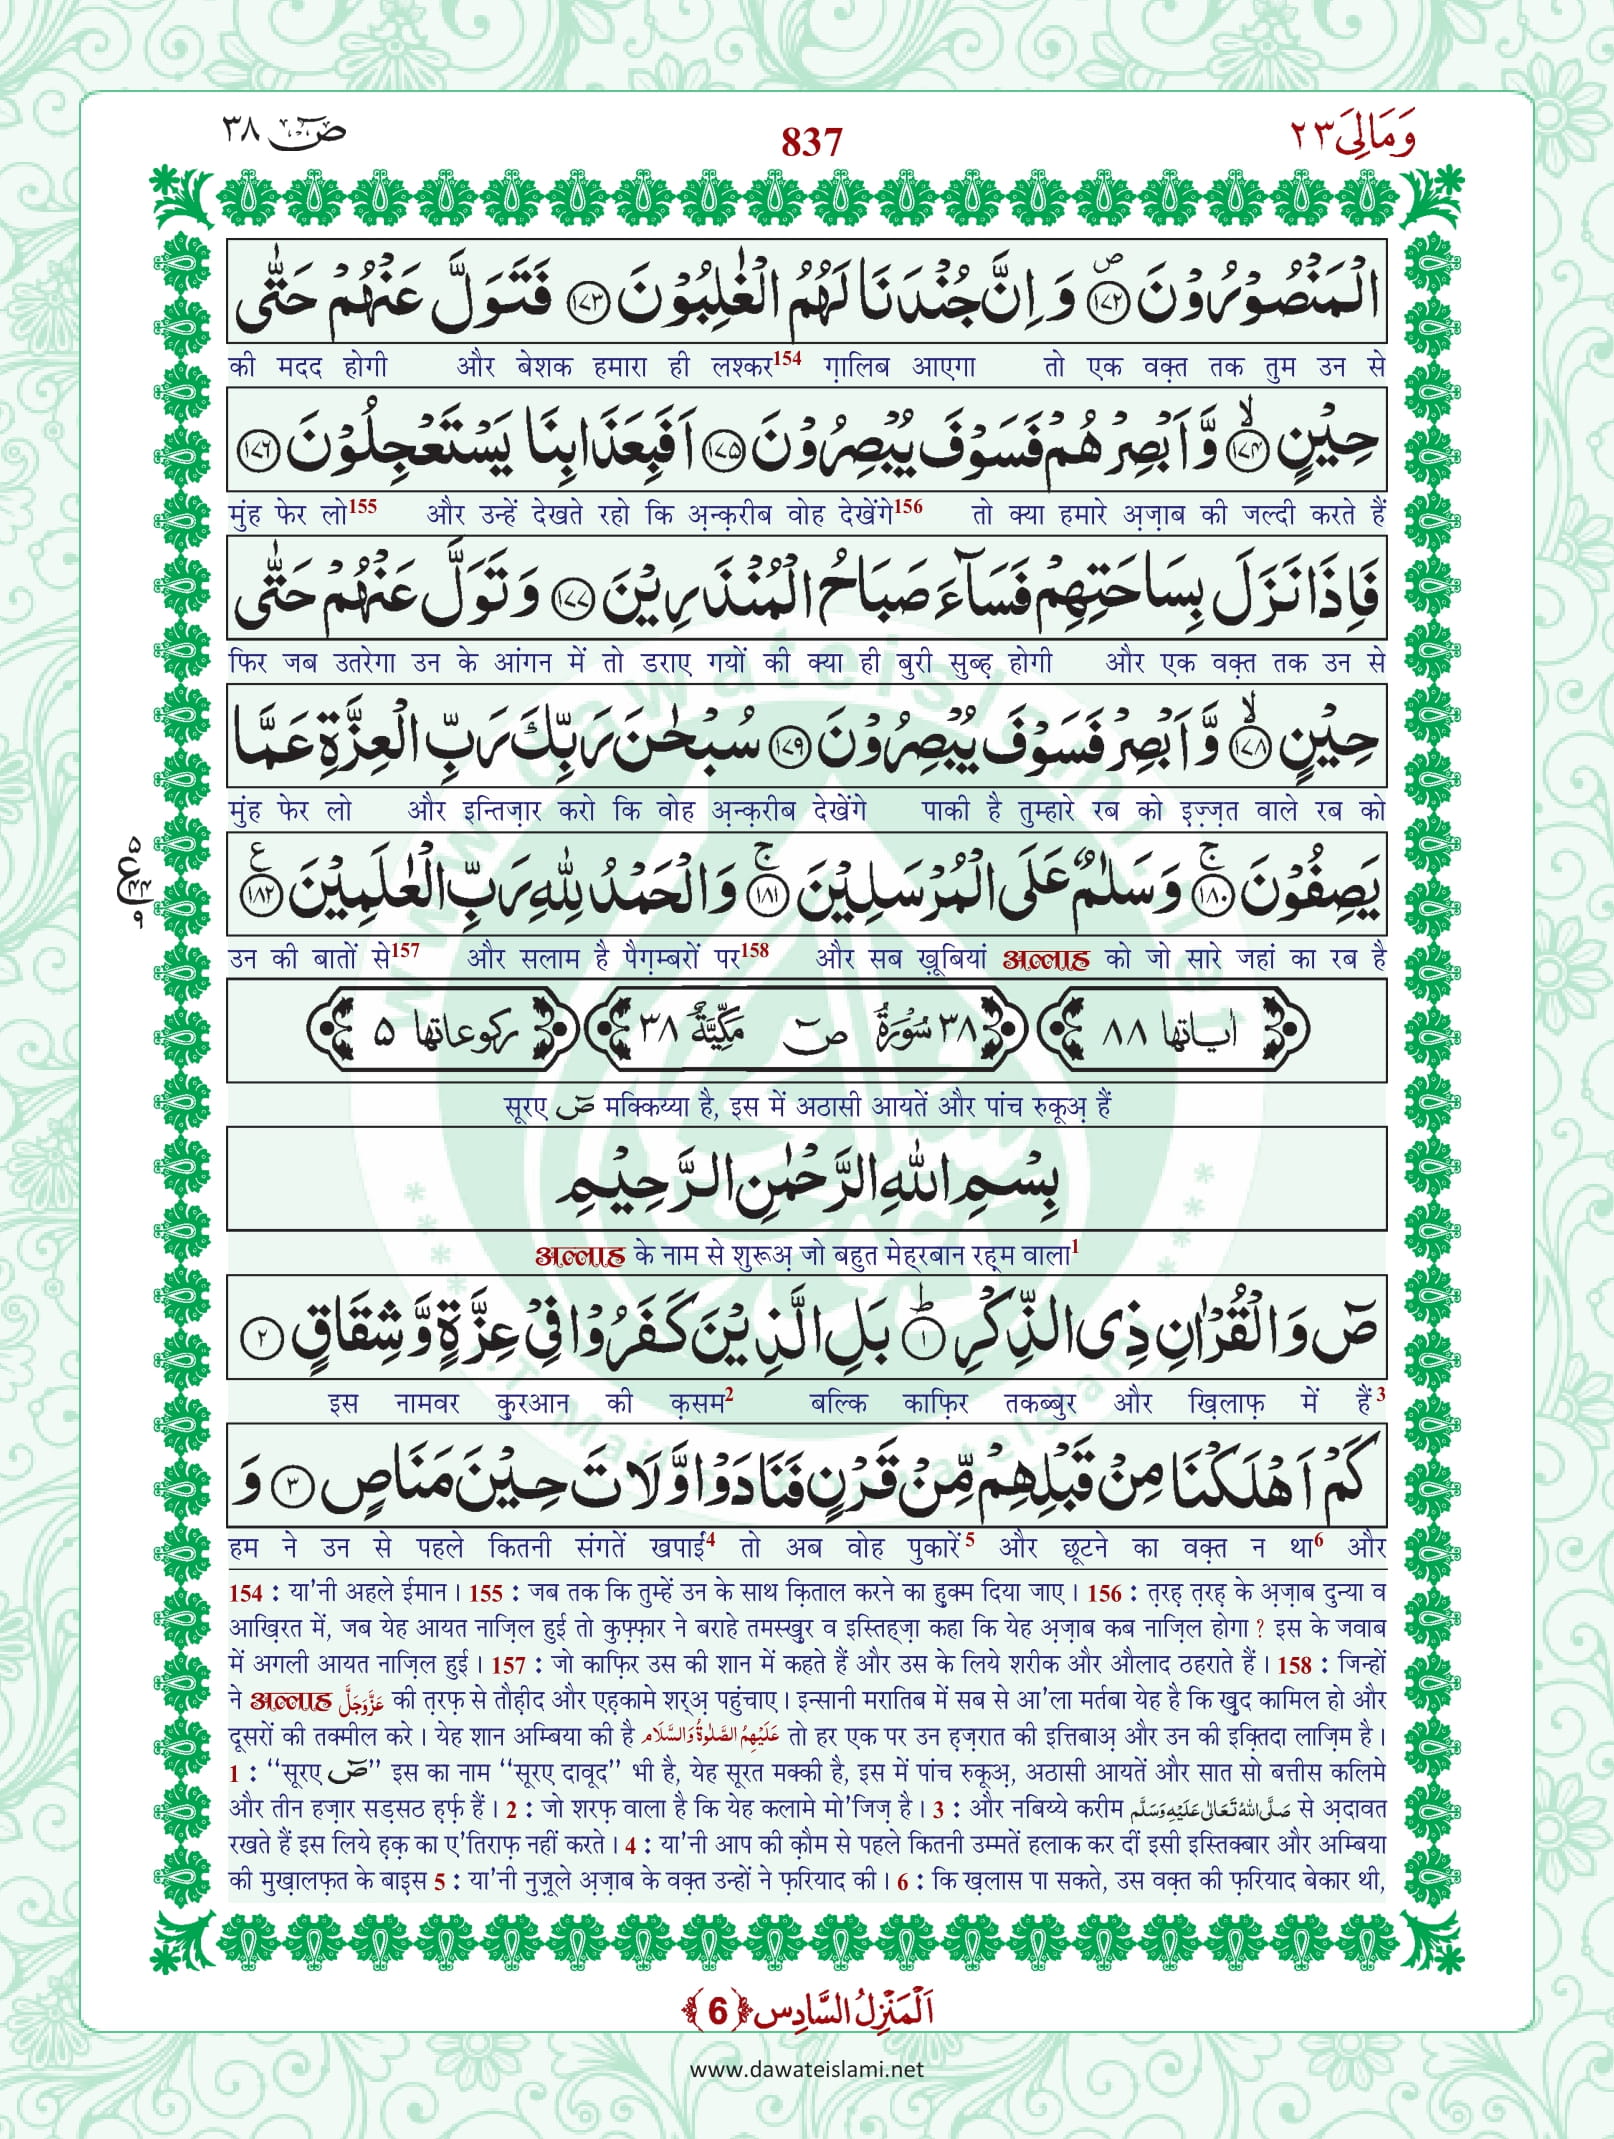 وَمَالِیَ ٢٣
837
صٓ ٣٨
الْمَنْصُوْرُوْنَ ﴿١٧٢﴾ۖ وَ اِنَّ جُنْدَنَا لَهُمُ الْغٰلِبُوْنَ ﴿١٧٣﴾ فَتَوَلَّ عَنْهُمْ حَتّٰى
की मदद होगी और बेशक हमारा ही लश्कर154 ग़ालिब आएगा तो एक वक़्त तक तुम उन से
حِیْنٍ ﴿١٧٤﴾ۙ وَّ اَبْصِرْهُمْ فَسَوْفَ یُبْصِرُوْنَ ﴿١٧٥﴾ اَفَبِعَذَابِنَا یَسْتَعْجِلُوْنَ ﴿١٧٦﴾
मुंह फेर लो155 और उन्हें देखते रहो कि अ़न्क़रीब वोह देखेंगे156 तो क्या हमारे अ़ज़ाब की जल्दी करते हैं
فَاِذَا نَزَلَ بِسَاحَتِهِمْ فَسَآءَ صَبَاحُ الْمُنْذَرِیْنَ ﴿١٧٧﴾ وَ تَوَلَّ عَنْهُمْ حَتّٰى
फिर जब उतरेगा उन के आंगन में तो डराए गयों की क्या ही बुरी सुब्ह़ होगी और एक वक़्त तक उन से
حِیْنٍ ﴿١٧٨﴾ۙ وَّ اَبْصِرْ فَسَوْفَ یُبْصِرُوْنَ ﴿١٧٩﴾ سُبْحٰنَ رَبِّكَ رَبِّ الْعِزَّةِ عَمَّا
मुंह फेर लो और इन्तिज़ार करो कि वोह अ़न्क़रीब देखेंगे पाकी है तुम्हारे रब को इ़ज़्ज़त वाले रब को
یَصِفُوْنَ ﴿١٨٠﴾ۚ وَ سَلٰمٌ عَلَى الْمُرْسَلِیْنَ ﴿١٨١﴾ۚ وَ الْحَمْدُ لِلّٰهِ رَبِّ الْعٰلَمِیْنَ ﴿١٨٢﴾
उन की बातों से157 और सलाम है पैग़म्बरों पर158 और सब ख़ूबियां अल्लाह को जो सारे जहां का रब है
اٰیاتها ٨٨ ٣٨ سُوْرَةُ صٓ مَكِّیَّةٌ ٣٨ ركوعاتها ٥
सूरए صٓ मक्किय्या है, इस में अठासी आयतें और पांच रुकूअ़ हैं
بِسْمِ اللّٰهِ الرَّحْمٰنِ الرَّحِیْمِ
अल्लाह के नाम से शुरूअ़ जो बहुत मेह्रबान रह़्म वाला1
صٓ وَ الْقُرْاٰنِ ذِی الذِّكْرِ ﴿١﴾ؕ بَلِ الَّذِیْنَ كَفَرُوْا فِیْ عِزَّةٍ وَّ شِقَاقٍ ﴿٢﴾
इस नामवर क़ुरआन की क़सम2 बल्कि काफ़िर तकब्बुर और ख़िलाफ़ में हैं3
كَمْ اَهْلَكْنَا مِنْ قَبْلِهِمْ مِّنْ قَرْنٍ فَنَادَوْا وَّ لَاتَ حِیْنَ مَنَاصٍ ﴿٣﴾ وَ
हम ने उन से पहले कितनी संगतें खपाईं4 तो अब वोह पुकारें5 और छूटने का वक़्त न था6 और
154 : या'नी अहले ईमान। 155 : जब तक कि तुम्हें उन के साथ क़िताल करने का हुक्म दिया जाए। 156 : त़रह़ त़रह़ के अ़ज़ाब दुन्या व
आख़िरत में, जब येह आयत नाज़िल हुई तो कुफ़्फ़ार ने बराहे तमस्ख़ुर व इस्तिह्ज़ा कहा कि येह अ़ज़ाब कब नाज़िल होगा ? इस के जवाब
में अगली आयत नाज़िल हुई। 157 : जो काफ़िर उस की शान में कहते हैं और उस के लिये शरीक और औलाद ठहराते हैं। 158 : जिन्हों
ने अल्लाह عَزَّوَجَلَّ की त़रफ़ से तौह़ीद और एह़कामे शर्अ़ पहुंचाए। इन्सानी मरातिब में सब से आ'ला मर्तबा येह है कि ख़ुद कामिल हो और
दूसरों की तक्मील करे। येह शान अम्बिया की है عَلَیْهِمُ الصَّلٰوةُ وَالسَّلَام तो हर एक पर उन ह़ज़रात की इत्तिबाअ़ और उन की इक़्तिदा लाज़िम है।
1 : ‘‘सूरए صٓ’’ इस का नाम ‘‘सूरए दावूद’’ भी है, येह सूरत मक्की है, इस में पांच रुकूअ़, अठासी आयतें और सात सो बत्तीस कलिमे
और तीन हज़ार सड़सठ ह़र्फ़ हैं। 2 : जो शरफ़ वाला है कि येह कलामे मो'जिज़ है। 3 : और नबिय्ये करीम صَلَّی اللّٰهُ تَعَالٰی عَلَیْهِ وَسَلَّم से अ़दावत
रखते हैं इस लिये ह़क़ का ए'तिराफ़ नहीं करते। 4 : या'नी आप की क़ौम से पहले कितनी उम्मतें हलाक कर दीं इसी इस्तिक्बार और अम्बिया
की मुख़ालफ़त के बाइस 5 : या'नी नुज़ूले अ़ज़ाब के वक़्त उन्हों ने फ़रियाद की। 6 : कि ख़लास पा सकते, उस वक़्त की फ़रियाद बेकार थी,
اَلْمَنْزِلُ السَّادِس ﴿6﴾
www.dawateislami.net